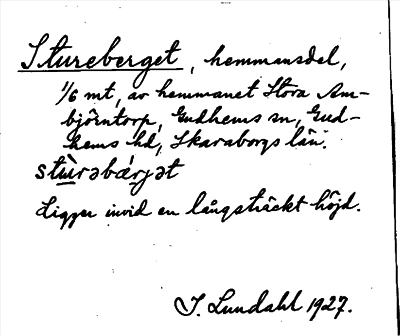 Stureberget, hemmansdel,
1/6 mt, av hemmanet Stora Am-
björntorp, Gudhems sn, Gud-
hems hd, Skaraborgs län.
stùrəbærjət
Ligger invid en långsträckt höjd.
J. Lundahl 1927.